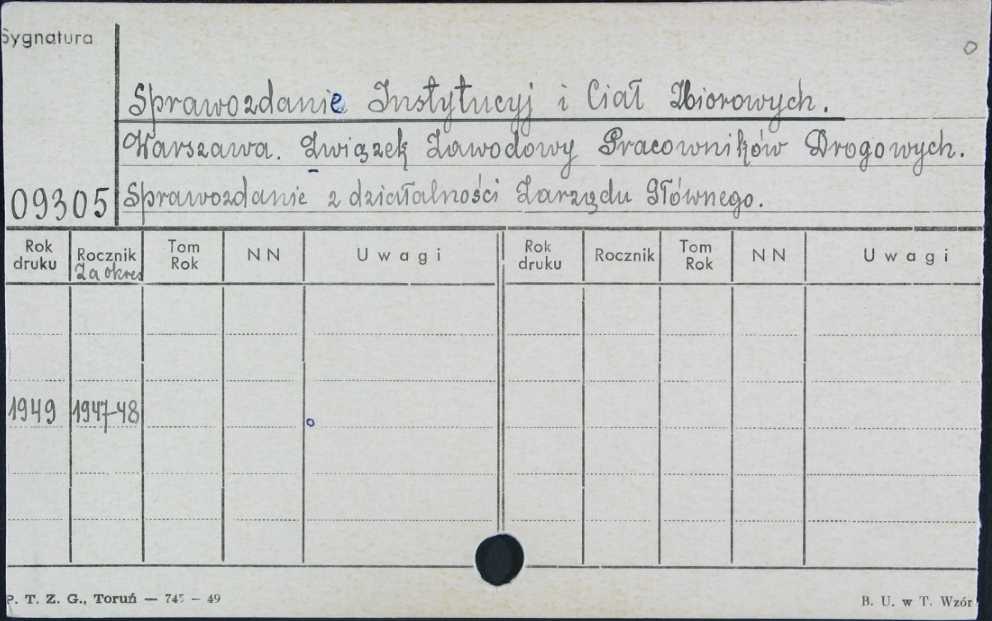 Sygnatura
Sprawozdanie Instytucyj i Ciał Zbiorowych.
Warszawa. Związek Zawodowy Pracowników Drogowych.
09305 Sprawozdanie z działalności Zarządu Głównego.
Rok druku Rocznik Za okres Tom Rok NN Uwagi Rok druku Rocznik Tom Rok NN Uwagi
1949 1947-48
P. T. Z. G., Toruń — 745 — 49 B. U. w T. Wzór